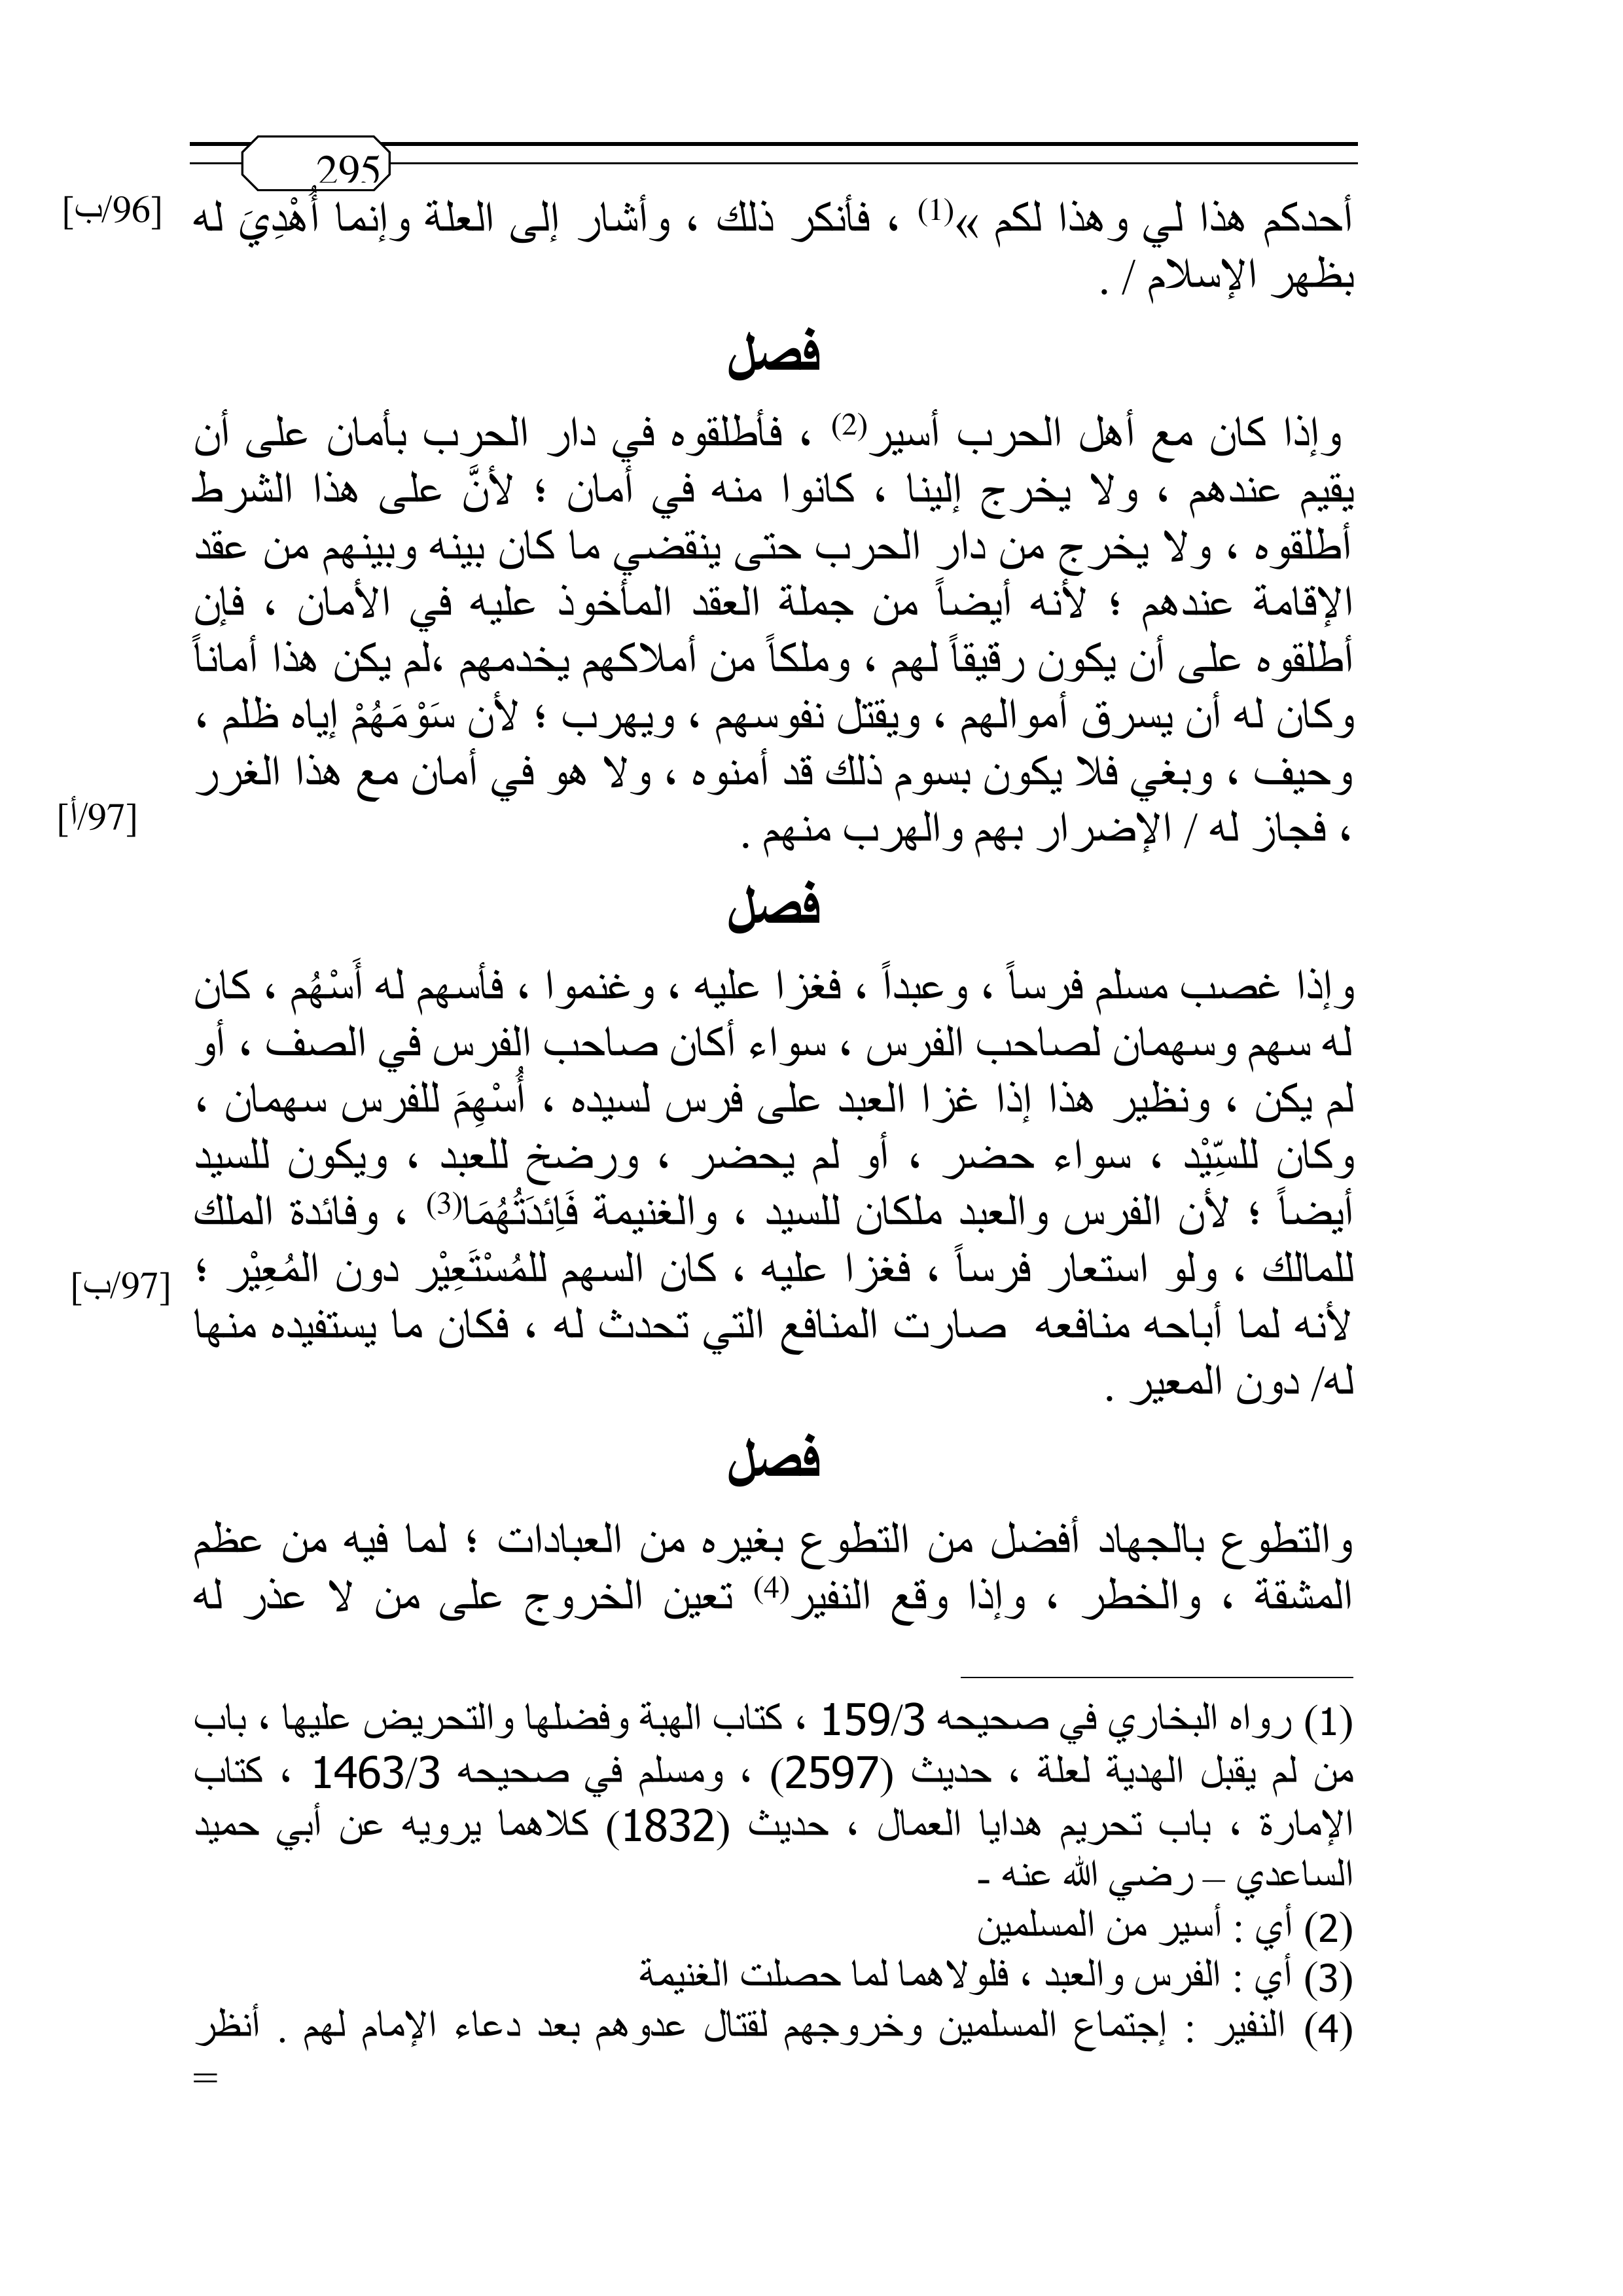 295
أحدكم هذا لي وهذا لكم »(1) ، فأنكر ذلك ، وأشار إلى العلة وإنما أُهْدِيَ له
[96/ب]
بظهر الإسلام / .
فصل
وإذا كان مع أهل الحرب أسير(2) ، فأطلقوه في دار الحرب بأمان على أن
يقيم عندهم ، ولا يخرج إلينا ، كانوا منه في أمان ؛ لأنَّ على هذا الشرط
أطلقوه ، ولا يخرج من دار الحرب حتى ينقضي ما كان بينه وبينهم من عقد
الإقامة عندهم ؛ لأنه أيضاً من جملة العقد المأخوذ عليه في الأمان ، فإن
أطلقوه على أن يكون رقيقاً لهم ، وملكاً من أملاكهم يخدمهم ،لم يكن هذا أماناً
وكان له أن يسرق أموالهم ، ويقتل نفوسهم ، ويهرب ؛ لأن سَوْمَهُمْ إياه ظلم ،
وحيف ، وبغي فلا يكون بسوم ذلك قد أمنوه ، ولا هو في أمان مع هذا الغرر
[97/أ]
، فجاز له / الإضرار بهم والهرب منهم .
فصل
وإذا غصب مسلم فرساً ، وعبداً ، فغزا عليه ، وغنموا ، فأسهم له أَسْهُم ، كان
له سهم وسهمان لصاحب الفرس ، سواء أكان صاحب الفرس في الصف ، أو
لم يكن ، ونظير هذا إذا غزا العبد على فرس لسيده ، أُسْهِمَ للفرس سهمان ،
وكان للسِّيْد ، سواء حضر ، أو لم يحضر ، ورضخ للعبد ، ويكون للسيد
أيضاً ؛ لأن الفرس والعبد ملكان للسيد ، والغنيمة فَاِئدَتُهُمَا(3) ، وفائدة الملك
للمالك ، ولو استعار فرساً ، فغزا عليه ، كان السهم للمُسْتَعِيْر دون المُعِيْر ؛
[97/ب]
لأنه لما أباحه منافعه صارت المنافع التي تحدث له ، فكان ما يستفيده منها
له/ دون المعير .
فصل
والتطوع بالجهاد أفضل من التطوع بغيره من العبادات ؛ لما فيه من عظم
المشقة ، والخطر ، وإذا وقع النفير(4) تعين الخروج على من لا عذر له
(1) رواه البخاري في صحيحه 159/3 ، كتاب الهبة وفضلها والتحريض عليها ، باب
من لم يقبل الهدية لعلة ، حديث (2597) ، ومسلم في صحيحه 1463/3 ، كتاب
الإمارة ، باب تحريم هدايا العمال ، حديث (1832) كلاهما يرويه عن أبي حميد
الساعدي – رضي الله عنه -
(2) أي : أسير من المسلمين
(3) أي : الفرس والعبد ، فلولاهما لما حصلت الغنيمة
(4) النفير : إجتماع المسلمين وخروجهم لقتال عدوهم بعد دعاء الإمام لهم . أنظر
=